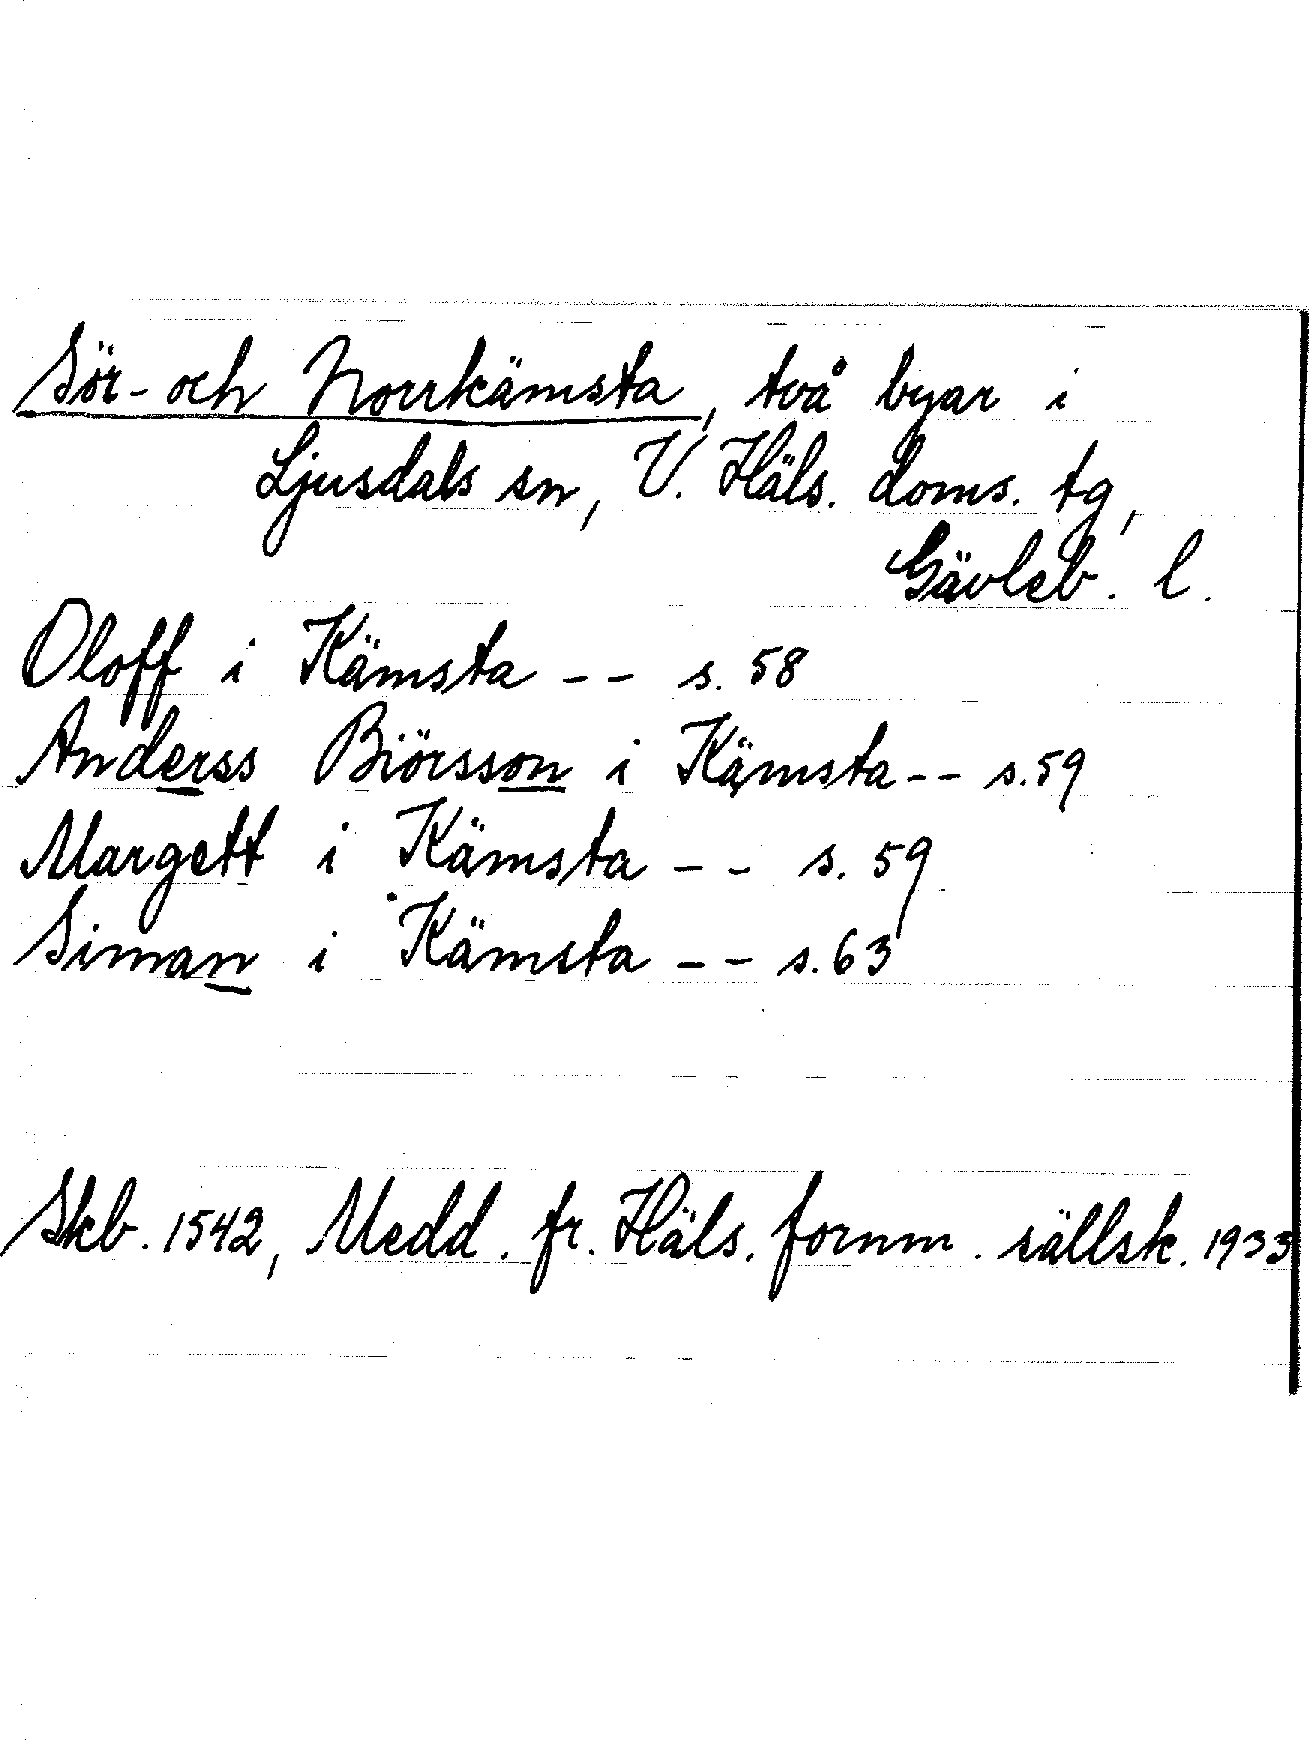 Sör- och Norrkämsta, två byar i
Ljusdals sn, V. Häls. doms. tg,
Gävleb. l.
Oloff i Kämsta -- s. 58
Anderss Biörsson i Kämsta -- s. 59
Margett i Kämsta -- s. 59
Siman i Kämsta -- s. 63
Skb. 1542, Medd. fr. Häls. fornm. sällsk. 1933